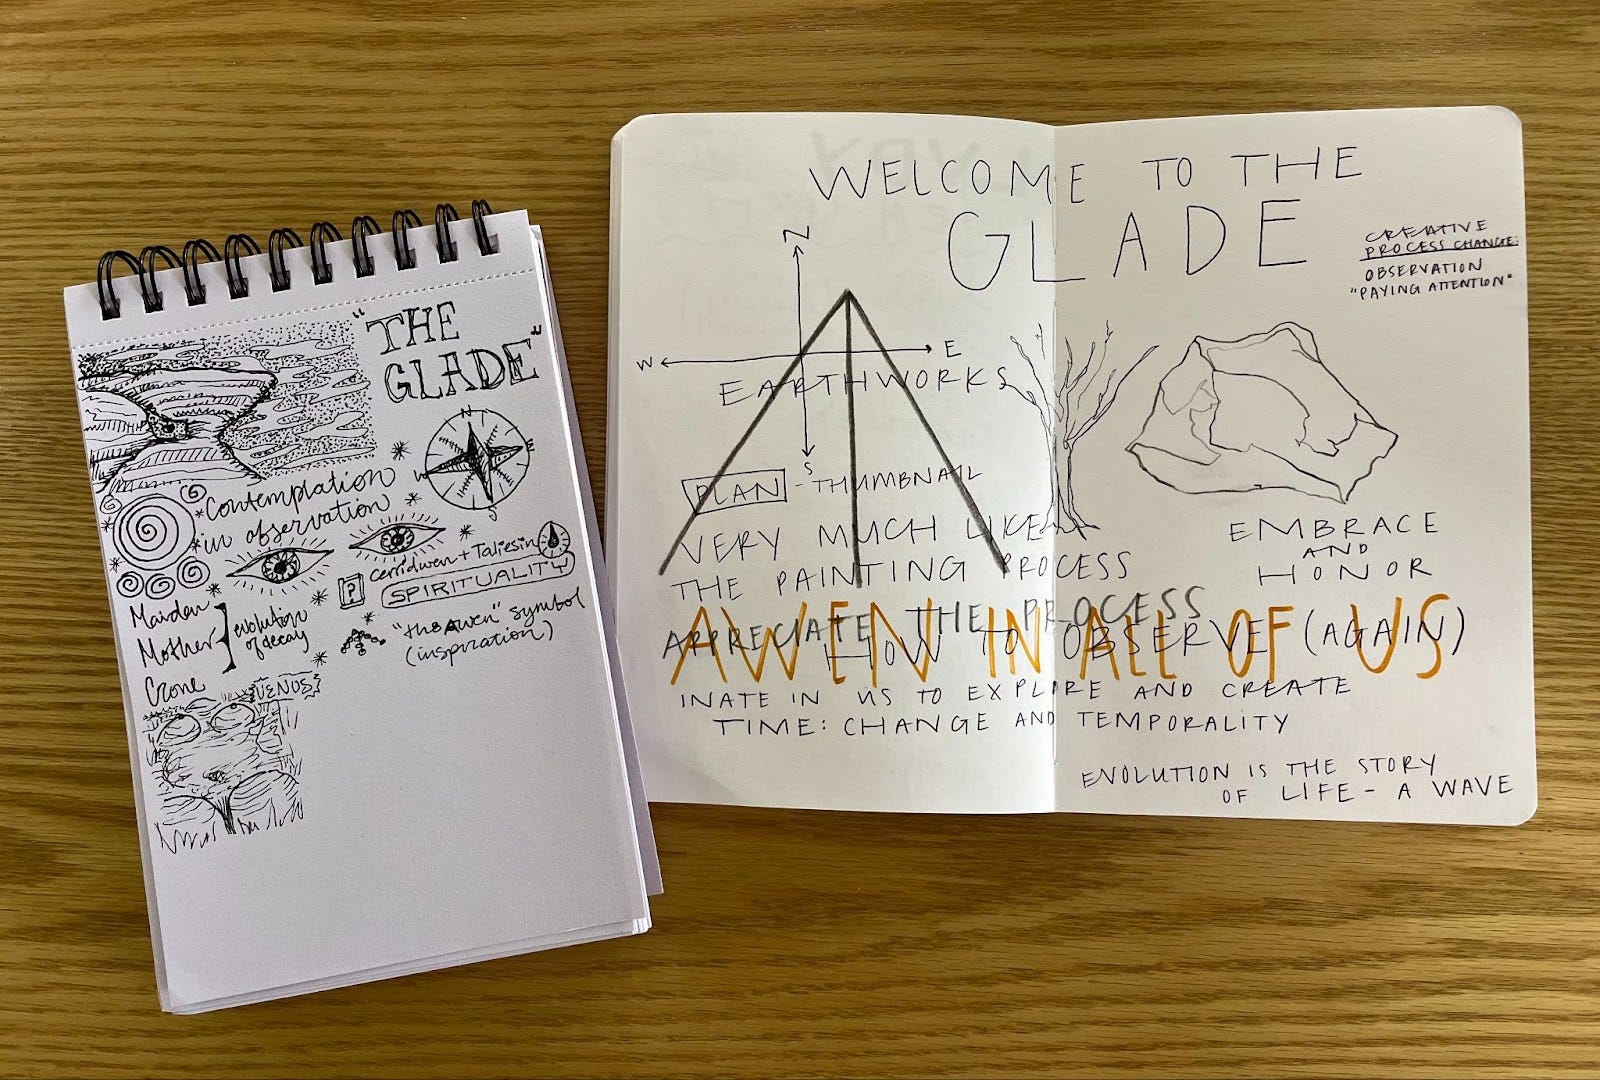 "THE
GLADE"
N
W
E
S
*Contemplation
in observation
cerridwen + Taliesin
?
SPIRITUALITY
Maiden
Mother
Crone
evolution
of decay
"the awen" symbol
(inspiration)
VENUS
WELCOME TO THE
GLADE
CREATIVE
PROCESS CHANGE:
OBSERVATION
"PAYING ATTENTION"
N
W
E
S
EARTHWORKS
PLAN - THUMBNAIL
VERY MUCH LIKE
THE PAINTING PROCESS
APPRECIATE THE PROCESS
AWEN IN ALL OF US
HOW TO OBSERVE (AGAIN)
INATE IN US TO EXPLORE AND CREATE
TIME: CHANGE AND TEMPORALITY
EMBRACE
AND
HONOR
EVOLUTION IS THE STORY
OF LIFE - A WAVE